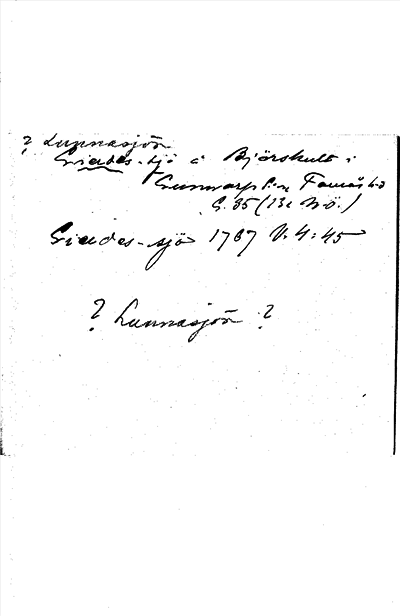 ? Lunnasjön
Giades-sjö å Björshult i
Gunnarp s:n Famås hd
G. 35 (13c NÖ.)
Giades-sjö 1787 V. 4:45
? Lunnasjön ?